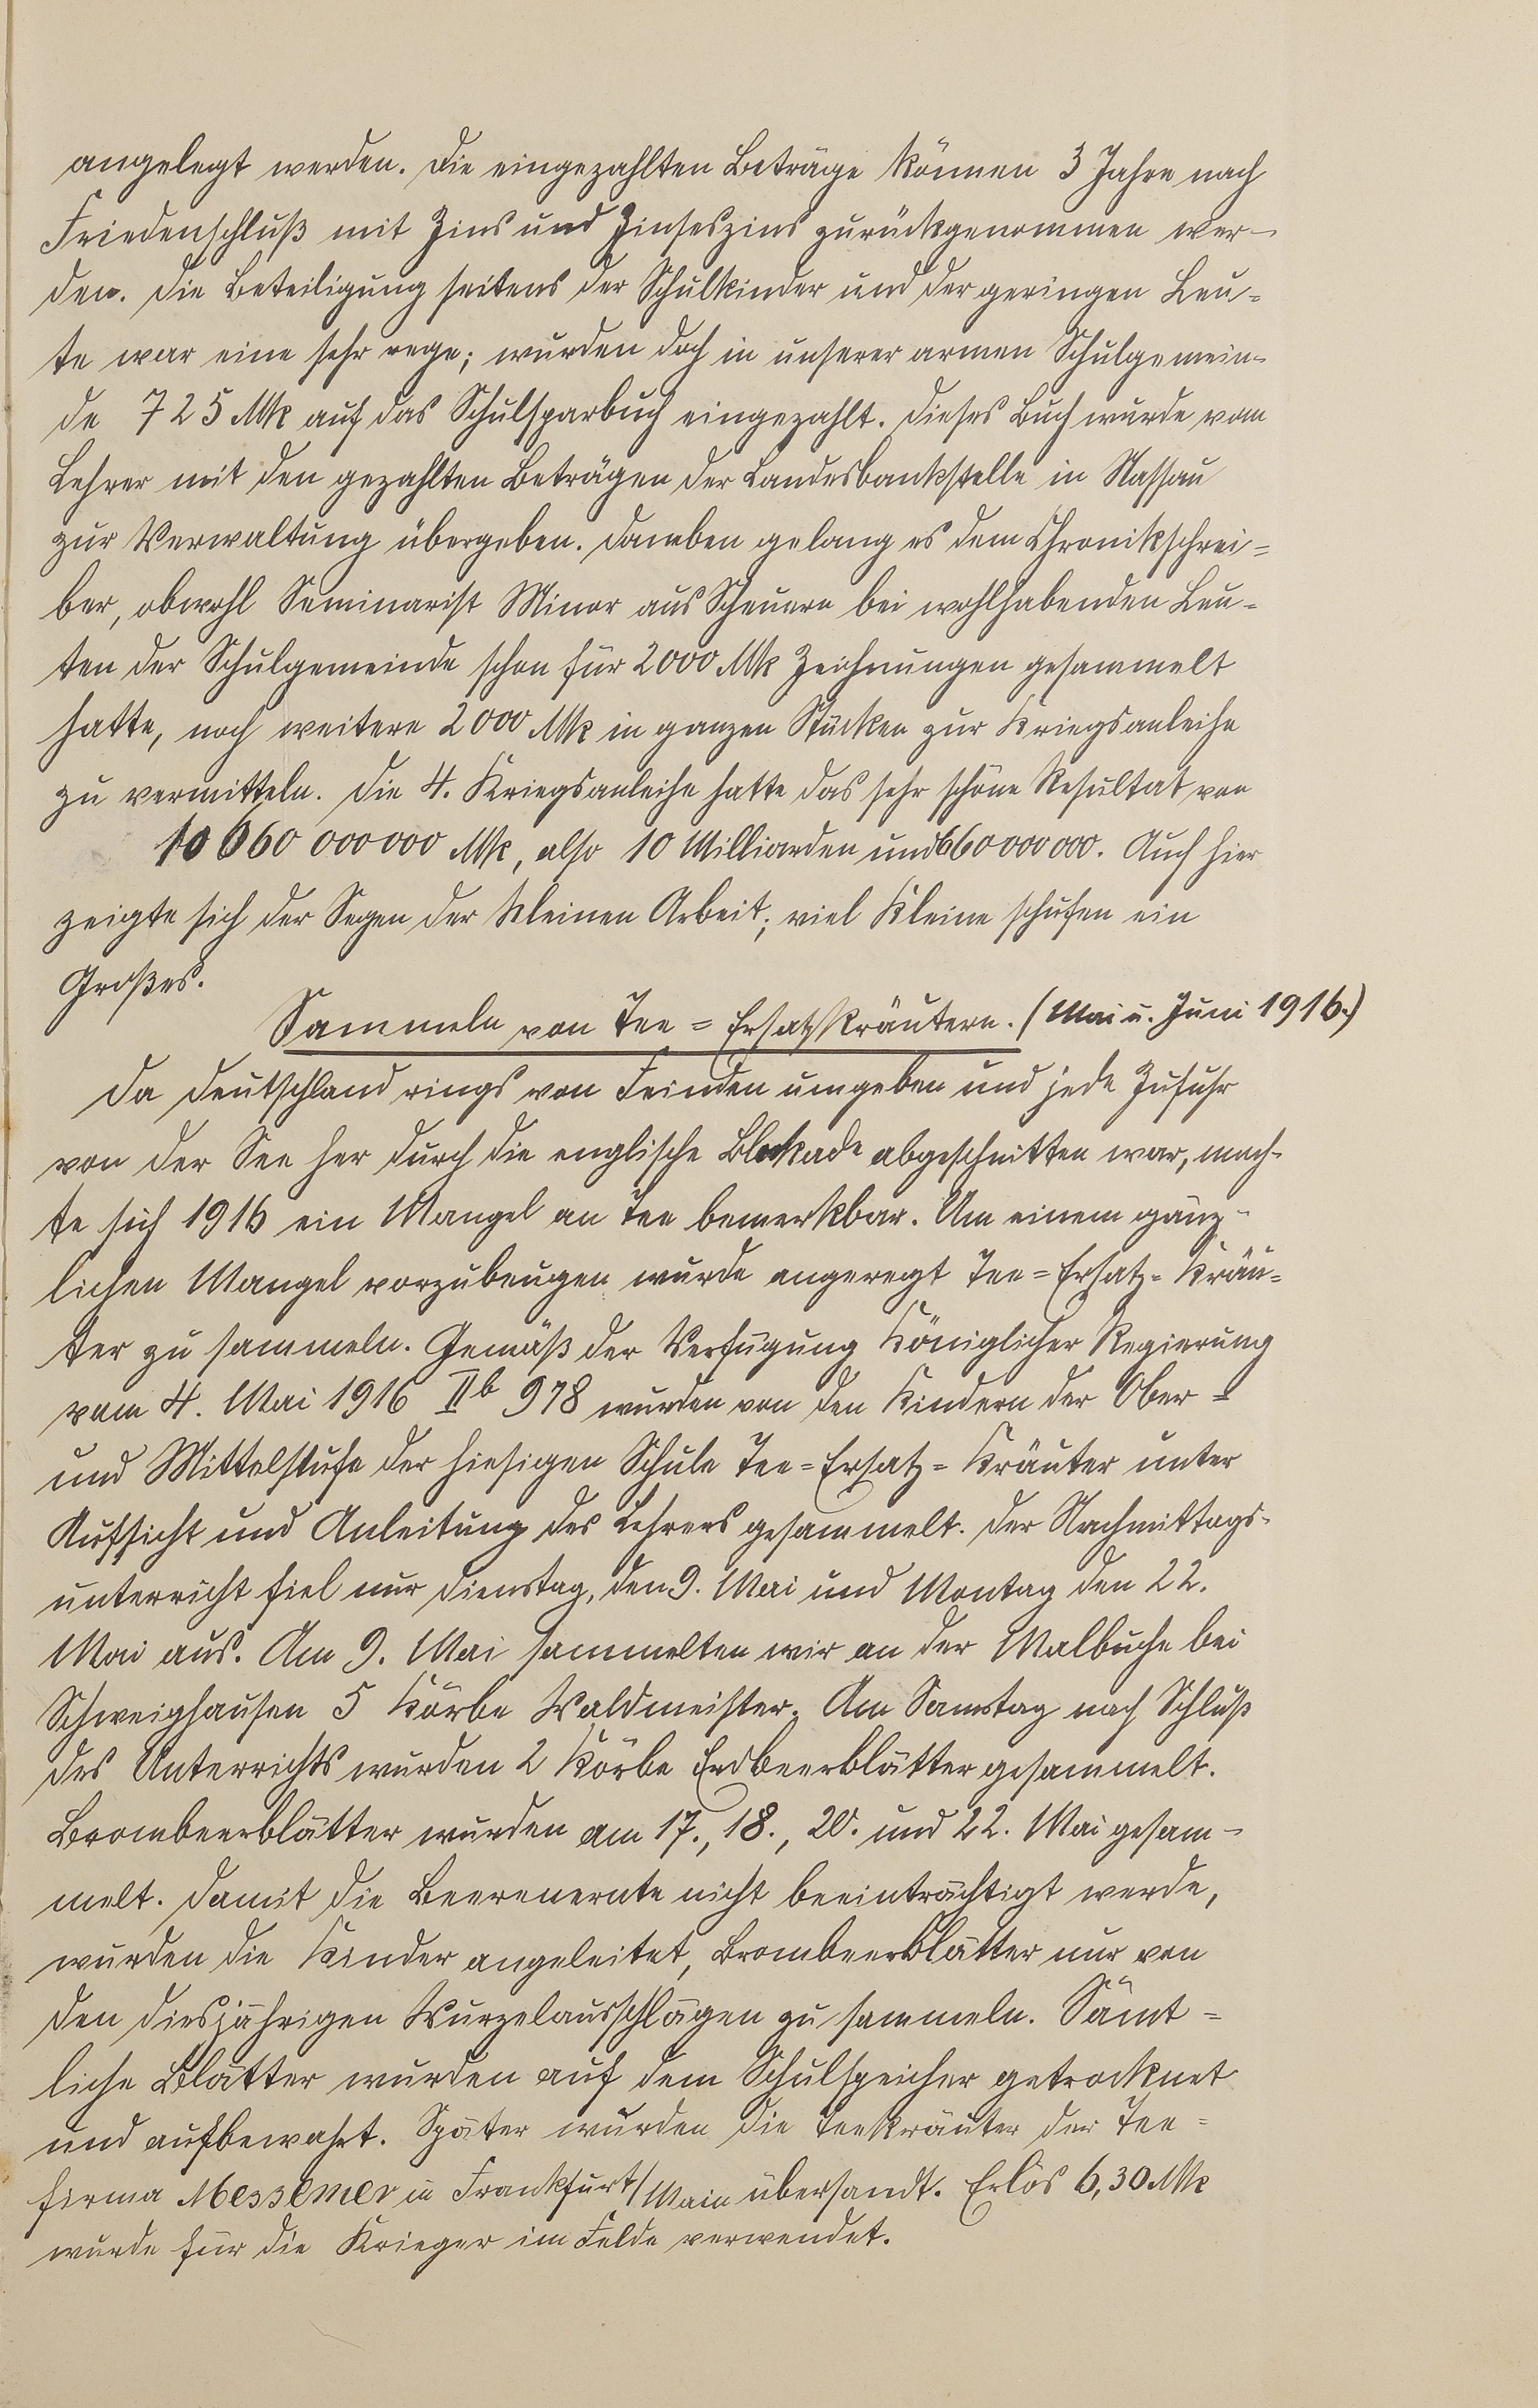 angelegt werden. Die eingezahlten Beträge können 3 Jahre nach
Friedenschluß mit Zins und Zinseszins zurückgenommen wer-
den. Die Beteiligung seitens der Schulkinder und der geringen Leu-
te war eine sehr rege; wurden doch in unserer armen Schulgemein-
de 725 Mk auf das Schulsparbuch eingezahlt. Dieses Buch wurde vom
Lehrer mit den gezahlten Beträgen der Landesbankstelle in Nassau
zur Verwaltung übergeben. Daneben gelang es dem Chronikschrei=
ber, obwohl Seminarist Minor aus Scheuern bei wohlhabenden Leu-
ten der Schulgemeinde schon für 2000 Mk Zeichnungen gesammelt
hatte, noch weitere 2000 Mk in ganzen Stücken zur Kriegsanleihe
zu vermitteln. Die 4. Kriegsanleihe hatte das sehr schöne Resultat von
10 660 000000 Mk, also 10 Milliarden und 660 000 000. Auch hier
zeigte sich der Segen der kleinen Arbeit; viel Kleine schufen ein
Großes.
Sammeln von Tee=Ersatzkräutern. (Mai u. Juni 1916.)
Da Deutschland rings von Feinden umgeben und jede Zufuhr
von der See her durch die englische Blokade abgeschnitten war, mach-
te sich 1916 ein Mangel an Tee bemerkbar. Um einem gänz-
lichen Mangel vorzubeugen wurde angeregt Tee=Ersatz=Kräu=
ter zu sammeln. Gemäß der Verfügung Königlicher Regierung
vom 4. Mai 1916 IIb 978 wurden von den Kindern der Ober=
und Mittelstufe der hiesigen Schule Tee=Ersatz=Kräuter unter
Aufsicht und Anleitung des Lehrers gesammelt. Der Nachmittags-
unterricht fiel nur Dienstag, den 9. Mai und Montag den 22.
Mai aus. Am 9. Mai sammelten wir an der Malbuche bei
Schweighausen 5 Körbe Waldmeister. Am Samstag nach Schluß
des Unterrichts wurden 2 Körbe Erdbeerblätter gesammelt.
Brombeerblätter wurden am 17., 18., 20. und 22. Mai gesam-
melt. Damit die Beerenernte nicht beeinträchtigt werde,
wurden die Kinder angeleitet, Brombeerblätter nur von
den diesjährigen Wurzelausschlägen zu sammeln. Sämt=
liche Blätter wurden auf dem Schulspeicher getrocknet
und aufbewahrt. Später wurden die Teekräuter der Tee=
firma Messemer in Frankfurt/Main übersandt. Erlös 6,30 Mk
wurde für die Krieger im Felde verwendet.